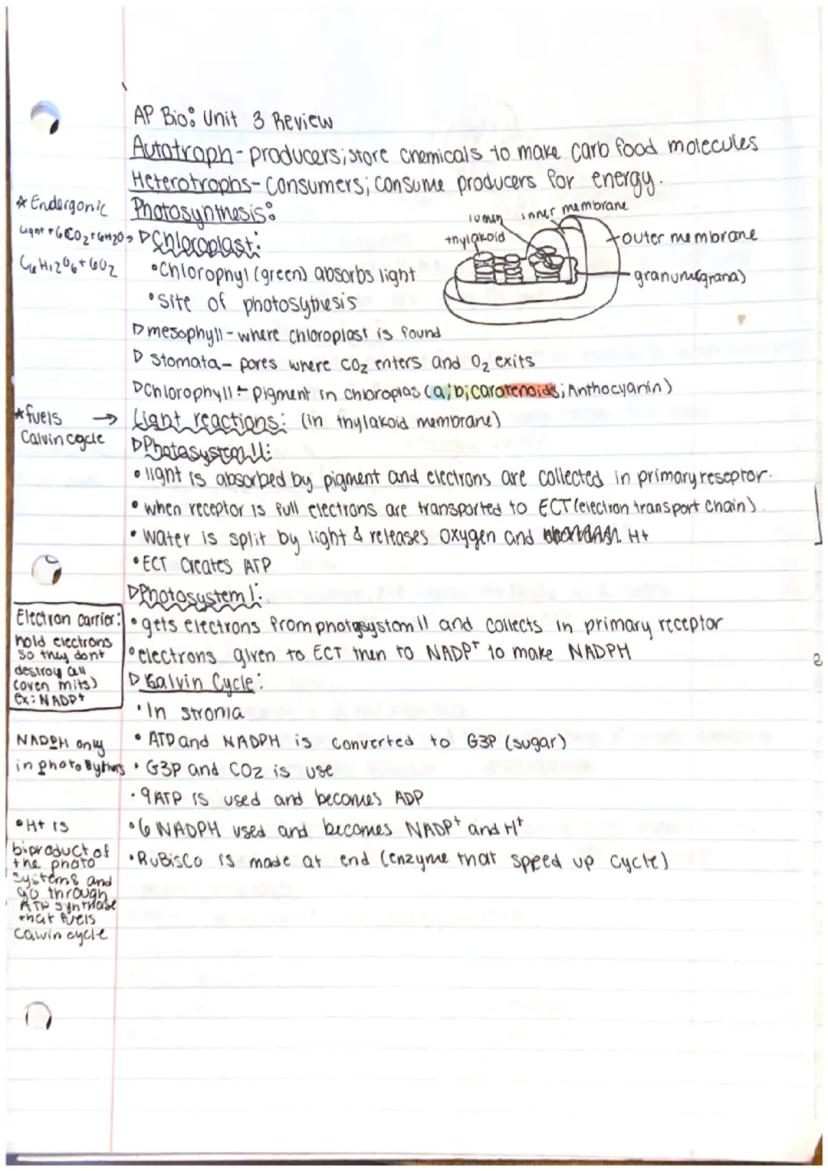 AP Bio: Unit 3 Review
Autotroph - producers; store chemicals to make carb food molecules
Heterotrophs - Consumers; consume producers for energy.
*Endergonic
Light + 6CO2 + 6H2O →
C6H12O6 + 6O2
Photosynthesis:
▷Chloroplast:
•Chlorophyl (green) absorbs light
•site of photosythesis
lumen
inner membrane
thylakoid
outer membrane
granum(grana)
▷mesophyll - where chloroplast is found
▷ stomata - pores where CO2 enters and O2 exits
▷Chlorophyll - Pigment in chloroplas (a; b; carotenoids; Anthocyanin)
*fuels →
Calvin cycle
Light reactions: (in thylakoid membrane)
▷Photosystem II:
• light is absorbed by pigment and electrons are collected in primary reseptor.
• when receptor is full electrons are transported to ECT (electron transport chain).
• Water is split by light & releases oxygen and H+
•ECT creates ATP
▷Photosystem I:
• gets electrons from photosystem II and collects in primary receptor
•electrons given to ECT then to NADP+ to make NADPH
Electron carrier:
hold electrons
so they dont
destroy all
ex: NADP+
▷ Calvin Cycle:
•In
• ATP and NADPH is converted to G3P (sugar)
• G3P and CO2 is use
•9 ATP is used and becomes ADP
•6 NADPH used and becomes NADP+ and H+
•RuBisCo is made at end (enzyme that speed up cycle)
NADPH only
in photo
•H+ is
biproduct of
the photo
systems and
go through
ATP synthase
that fuels
calvin cycle